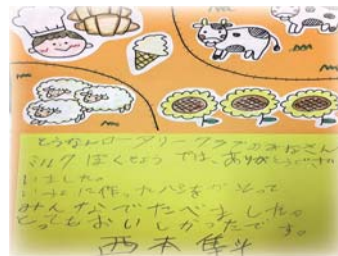 とうなんロータリークラブのみなさん
ミルクぼくじょうでは、ありがとうござ
いました。
に作ったパンをもって
みんなでたべました。
とってもおいしかったです。
西本隼斗